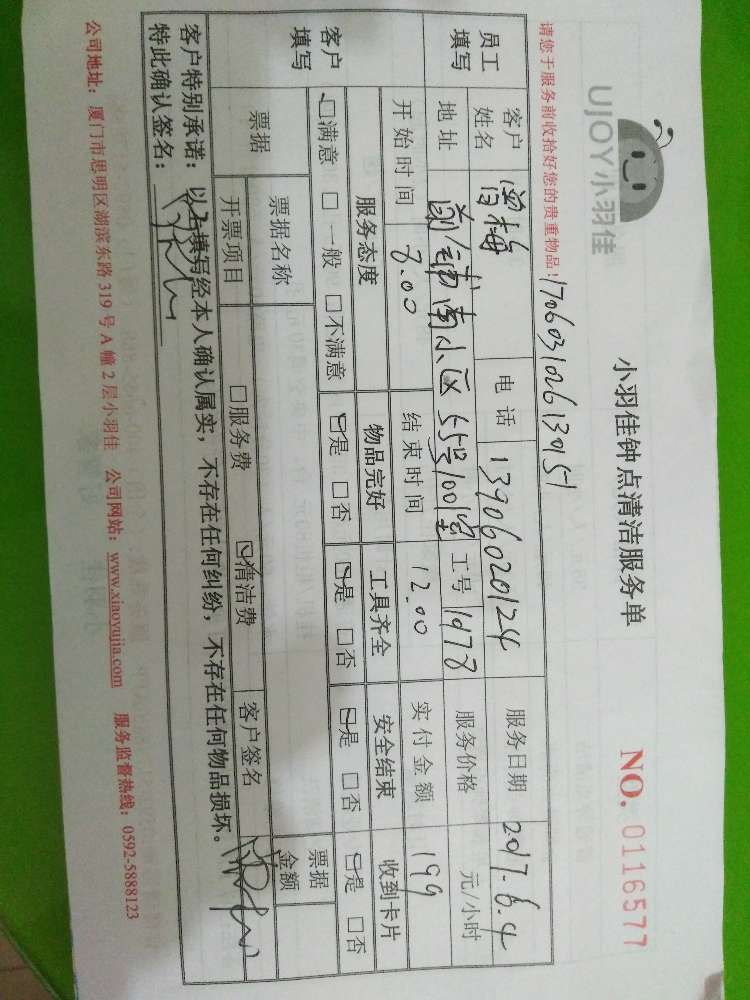 UJOY小羽佳
小羽佳钟点清洁服务单
NO. 0116577
请您于服务前收拾好您的贵重物品！ 1706031026139151
员工填写
客户姓名 曾梅 电话 13906020124 服务日期 2017.6.4
地址 前埔南小区55号1001室 工号 1978 服务价格 元/小时
开始时间 8.00 结束时间 12.00 实付金额 199
客户填写
服务态度 物品完好 工具齐全 安全结束 收到卡片
☑满意 □一般 □不满意 ☑是 □否 ☑是 □否 ☑是 □否 ☑是 □否
票据 票据名称 票据金额
开票项目 □服务费 ☑清洁费 客户签名
客户特别承诺：以上填写经本人确认属实，不存在任何纠纷，不存在任何物品损坏。
特此确认签名：
公司地址：厦门市思明区湖滨东路319号A幢2层小羽佳 公司网站：www.xiaoyujia.com 服务监督热线：0592-5888123